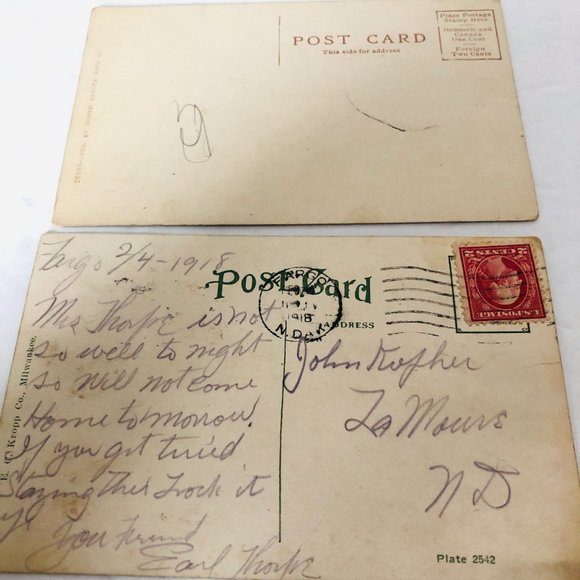 POST CARD
This side for address
Place Postage
Stamp Here
Domestic and
Canada
One Cent
Foreign
Two Cents
Fargo 2/4-1918
Post Card
FARGO
1918
N.DAK.
ADDRESS
U.S. POSTAGE
2 CENTS 2
E. C. Kropp Co., Milwaukee.
Mrs Thorpe is not
so well to night
so will not come
Home to morrow.
If you get tired
Staying there Lock it
up
Your Friend
Earl Thorpe
John
La Moure
ND
Plate 2542